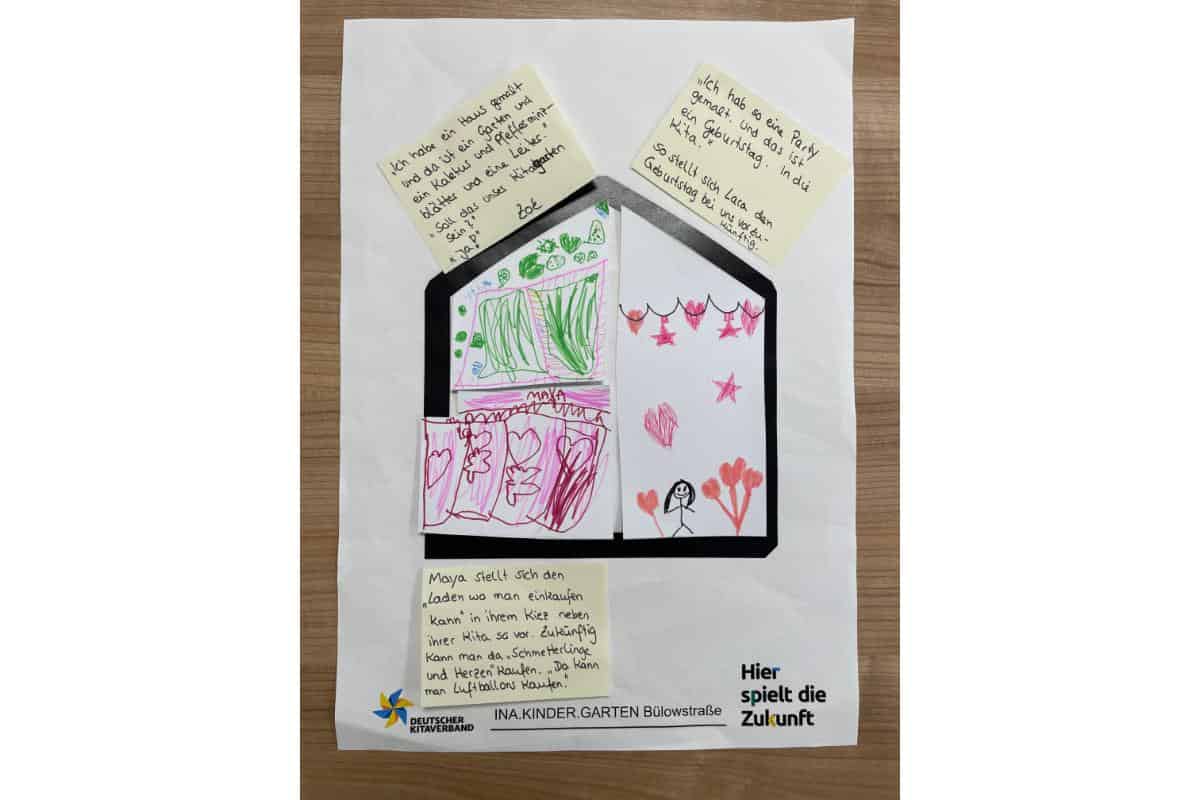 Ich habe ein Haus gemalt
und da ist ein Garten und
ein Kaktus und Pfefferminz-
blätter und eine Leiter."
"Soll das unser Kitagarten
sein?"
"Ja!"
Zoé
„Ich hab so eine Party
gemalt. Und das ist
ein Geburtstag. In die
Kita."
So stellt sich Lara den
Geburtstag bei uns vor zu-
künftig.
MAYA
Maya stellt sich den
„Laden wo man einkaufen
kann" in ihrem Kiez neben
ihrer Kita so vor. Zukünftig
kann man da „Schmetterlinge
und Herzen" kaufen. „Da kann
man Luftballons kaufen."
DEUTSCHER
KITAVERBAND
INA.KINDER.GARTEN Bülowstraße
Hier
spielt die
Zukunft